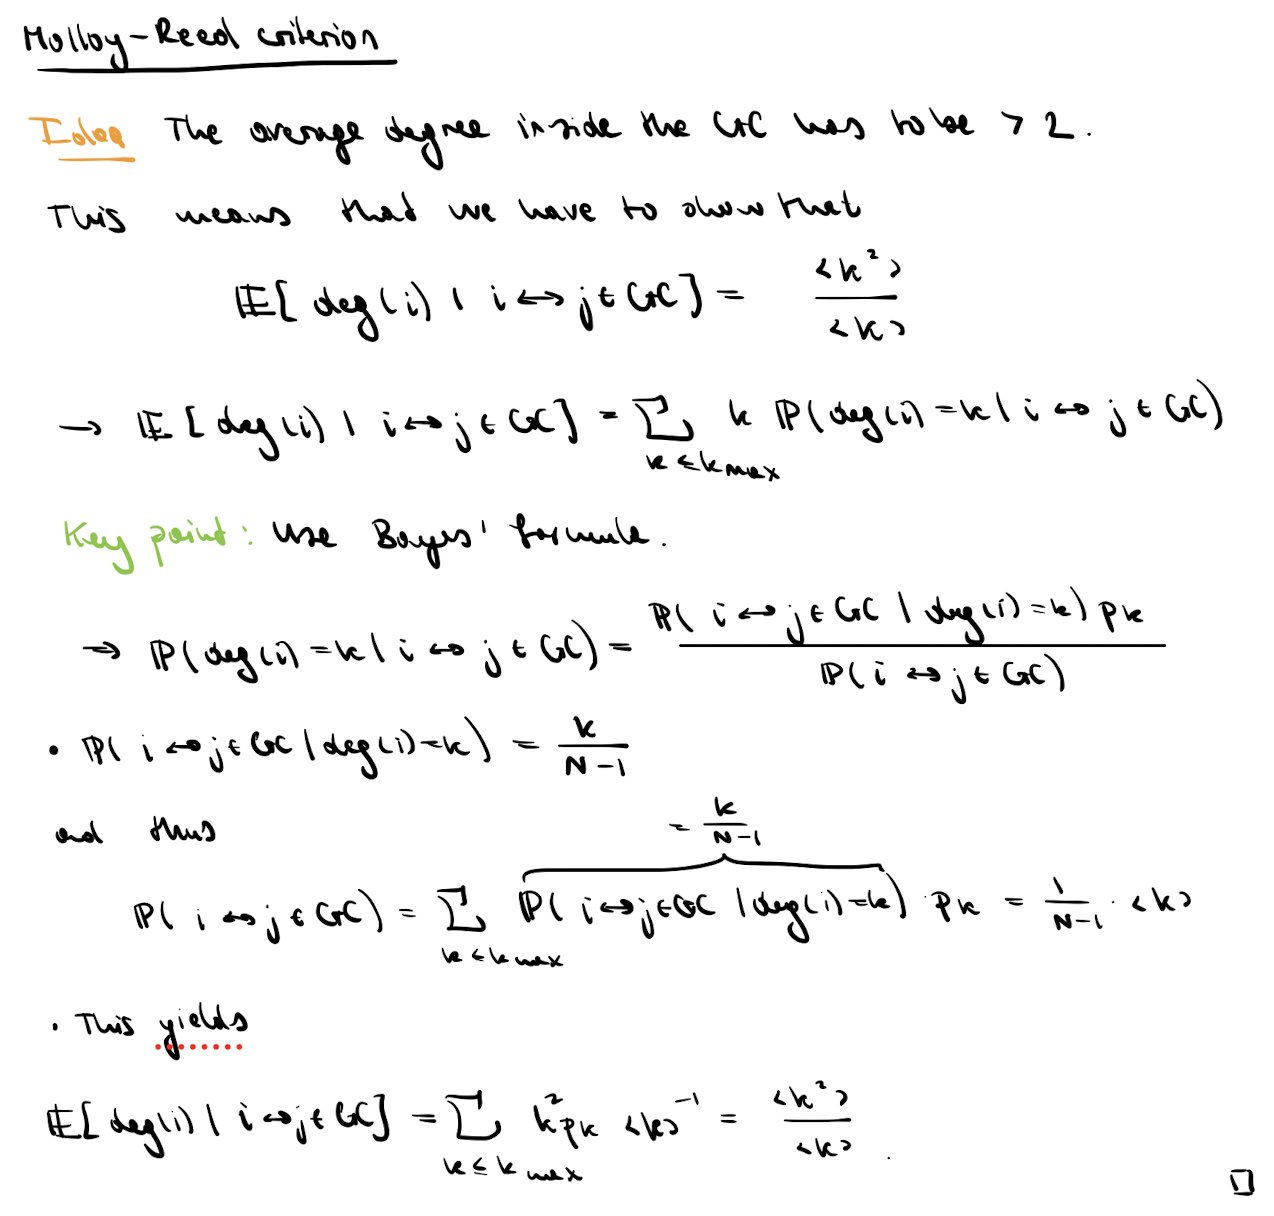 Molloy-Reed criterion
Idea The average degree inside the GC has to be > 2.
This means that we have to show that
𝔼[ deg(i) | i ↔ j ∈ GC ] = <k²> / <k>
→ 𝔼[ deg(i) | i ↔ j ∈ GC ] = ∑_{k ≤ k_max} k ℙ( deg(i) = k | i ↔ j ∈ GC )
Key point: Use Bayes' formula.
→ ℙ( deg(i) = k | i ↔ j ∈ GC ) = ℙ( i ↔ j ∈ GC | deg(i) = k ) p_k / ℙ( i ↔ j ∈ GC )
• ℙ( i ↔ j ∈ GC | deg(i) = k ) = k / (N-1)
and thus
= k / (N-1)
ℙ( i ↔ j ∈ GC ) = ∑_{k ≤ k_max} ℙ( i ↔ j ∈ GC | deg(i) = k ) · p_k = 1 / (N-1) · <k>
• This yields
𝔼[ deg(i) | i ↔ j ∈ GC ] = ∑_{k ≤ k_max} k² p_k <k>⁻¹ = <k²> / <k> .
□